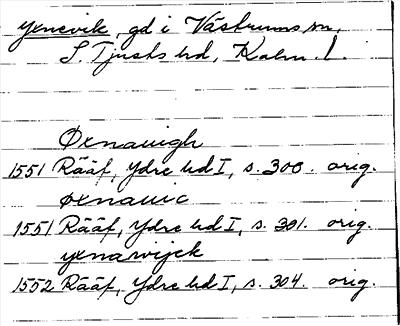 Yxnevik, gd i Västrums sn,
S. Tjusts hd, Kalm. l.
Øxnauigh
1551 Rääf, Ydre hd I, s. 300. orig.
øxnauic
1551 Rääf, Ydre hd I, s. 301. orig.
yxnawijck
1552 Rääf, Ydre hd I, s. 304. orig.